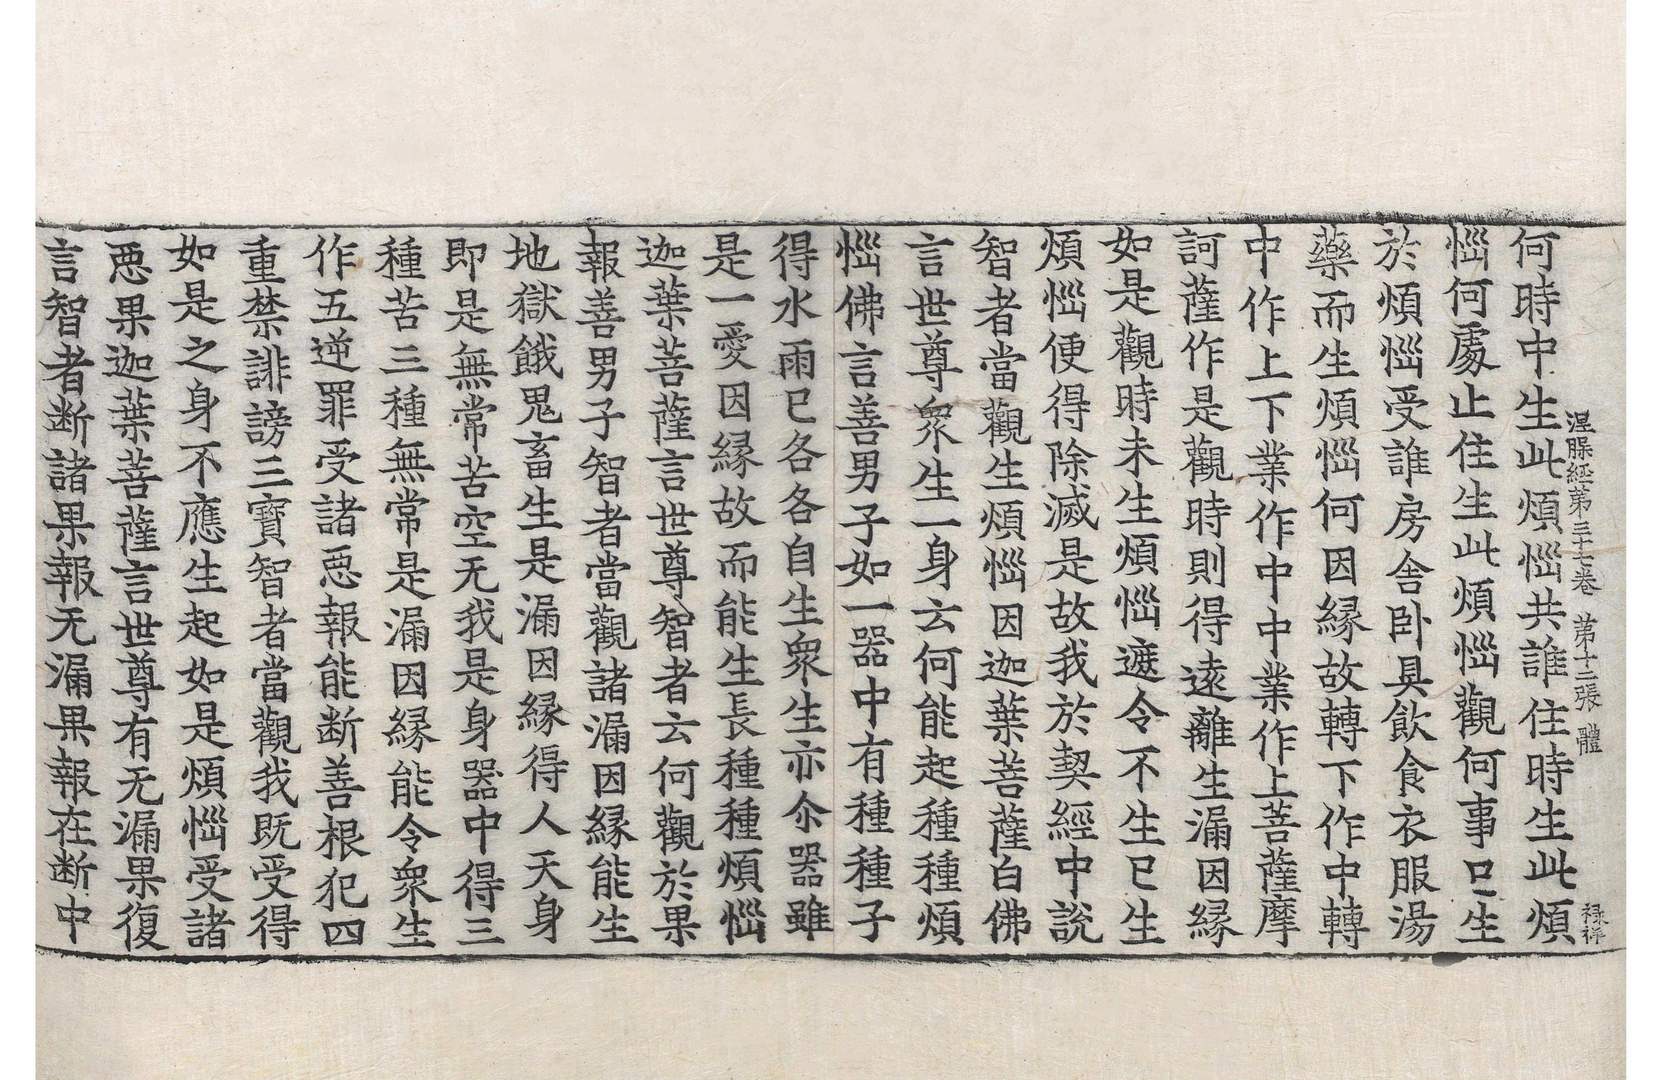 涅槃經第三十七卷 第十二張 體 祿祥
何時中生此煩惱共誰住時生此煩
惱何處止住生此煩惱觀何事已生
於煩惱受誰房舍卧具飲食衣服湯
藥而生煩惱何因縁故轉下作中轉
中作上下業作中中業作上菩薩摩
訶薩作是觀時則得遠離生漏因縁
如是觀時未生煩惱遮令不生已生
煩惱便得除滅是故我於契經中說
智者當觀生煩惱因迦葉菩薩白佛
言世尊衆生一身云何能起種種煩
惱佛言善男子如一器中有種種子
得水雨已各各自生衆生亦尒器雖
是一愛因縁故而能生長種種煩惱
迦葉菩薩言世尊智者云何觀於果
報善男子智者當觀諸漏因縁能生
地獄餓鬼畜生是漏因縁得人天身
即是無常苦空无我是身器中得三
種苦三種無常是漏因縁能令衆生
作五逆罪受諸惡報能断善根犯四
重禁誹謗三寶智者當觀我既受得
如是之身不應生起如是煩惱受諸
惡果迦葉菩薩言世尊有无漏果復
言智者断諸果報无漏果報在断中